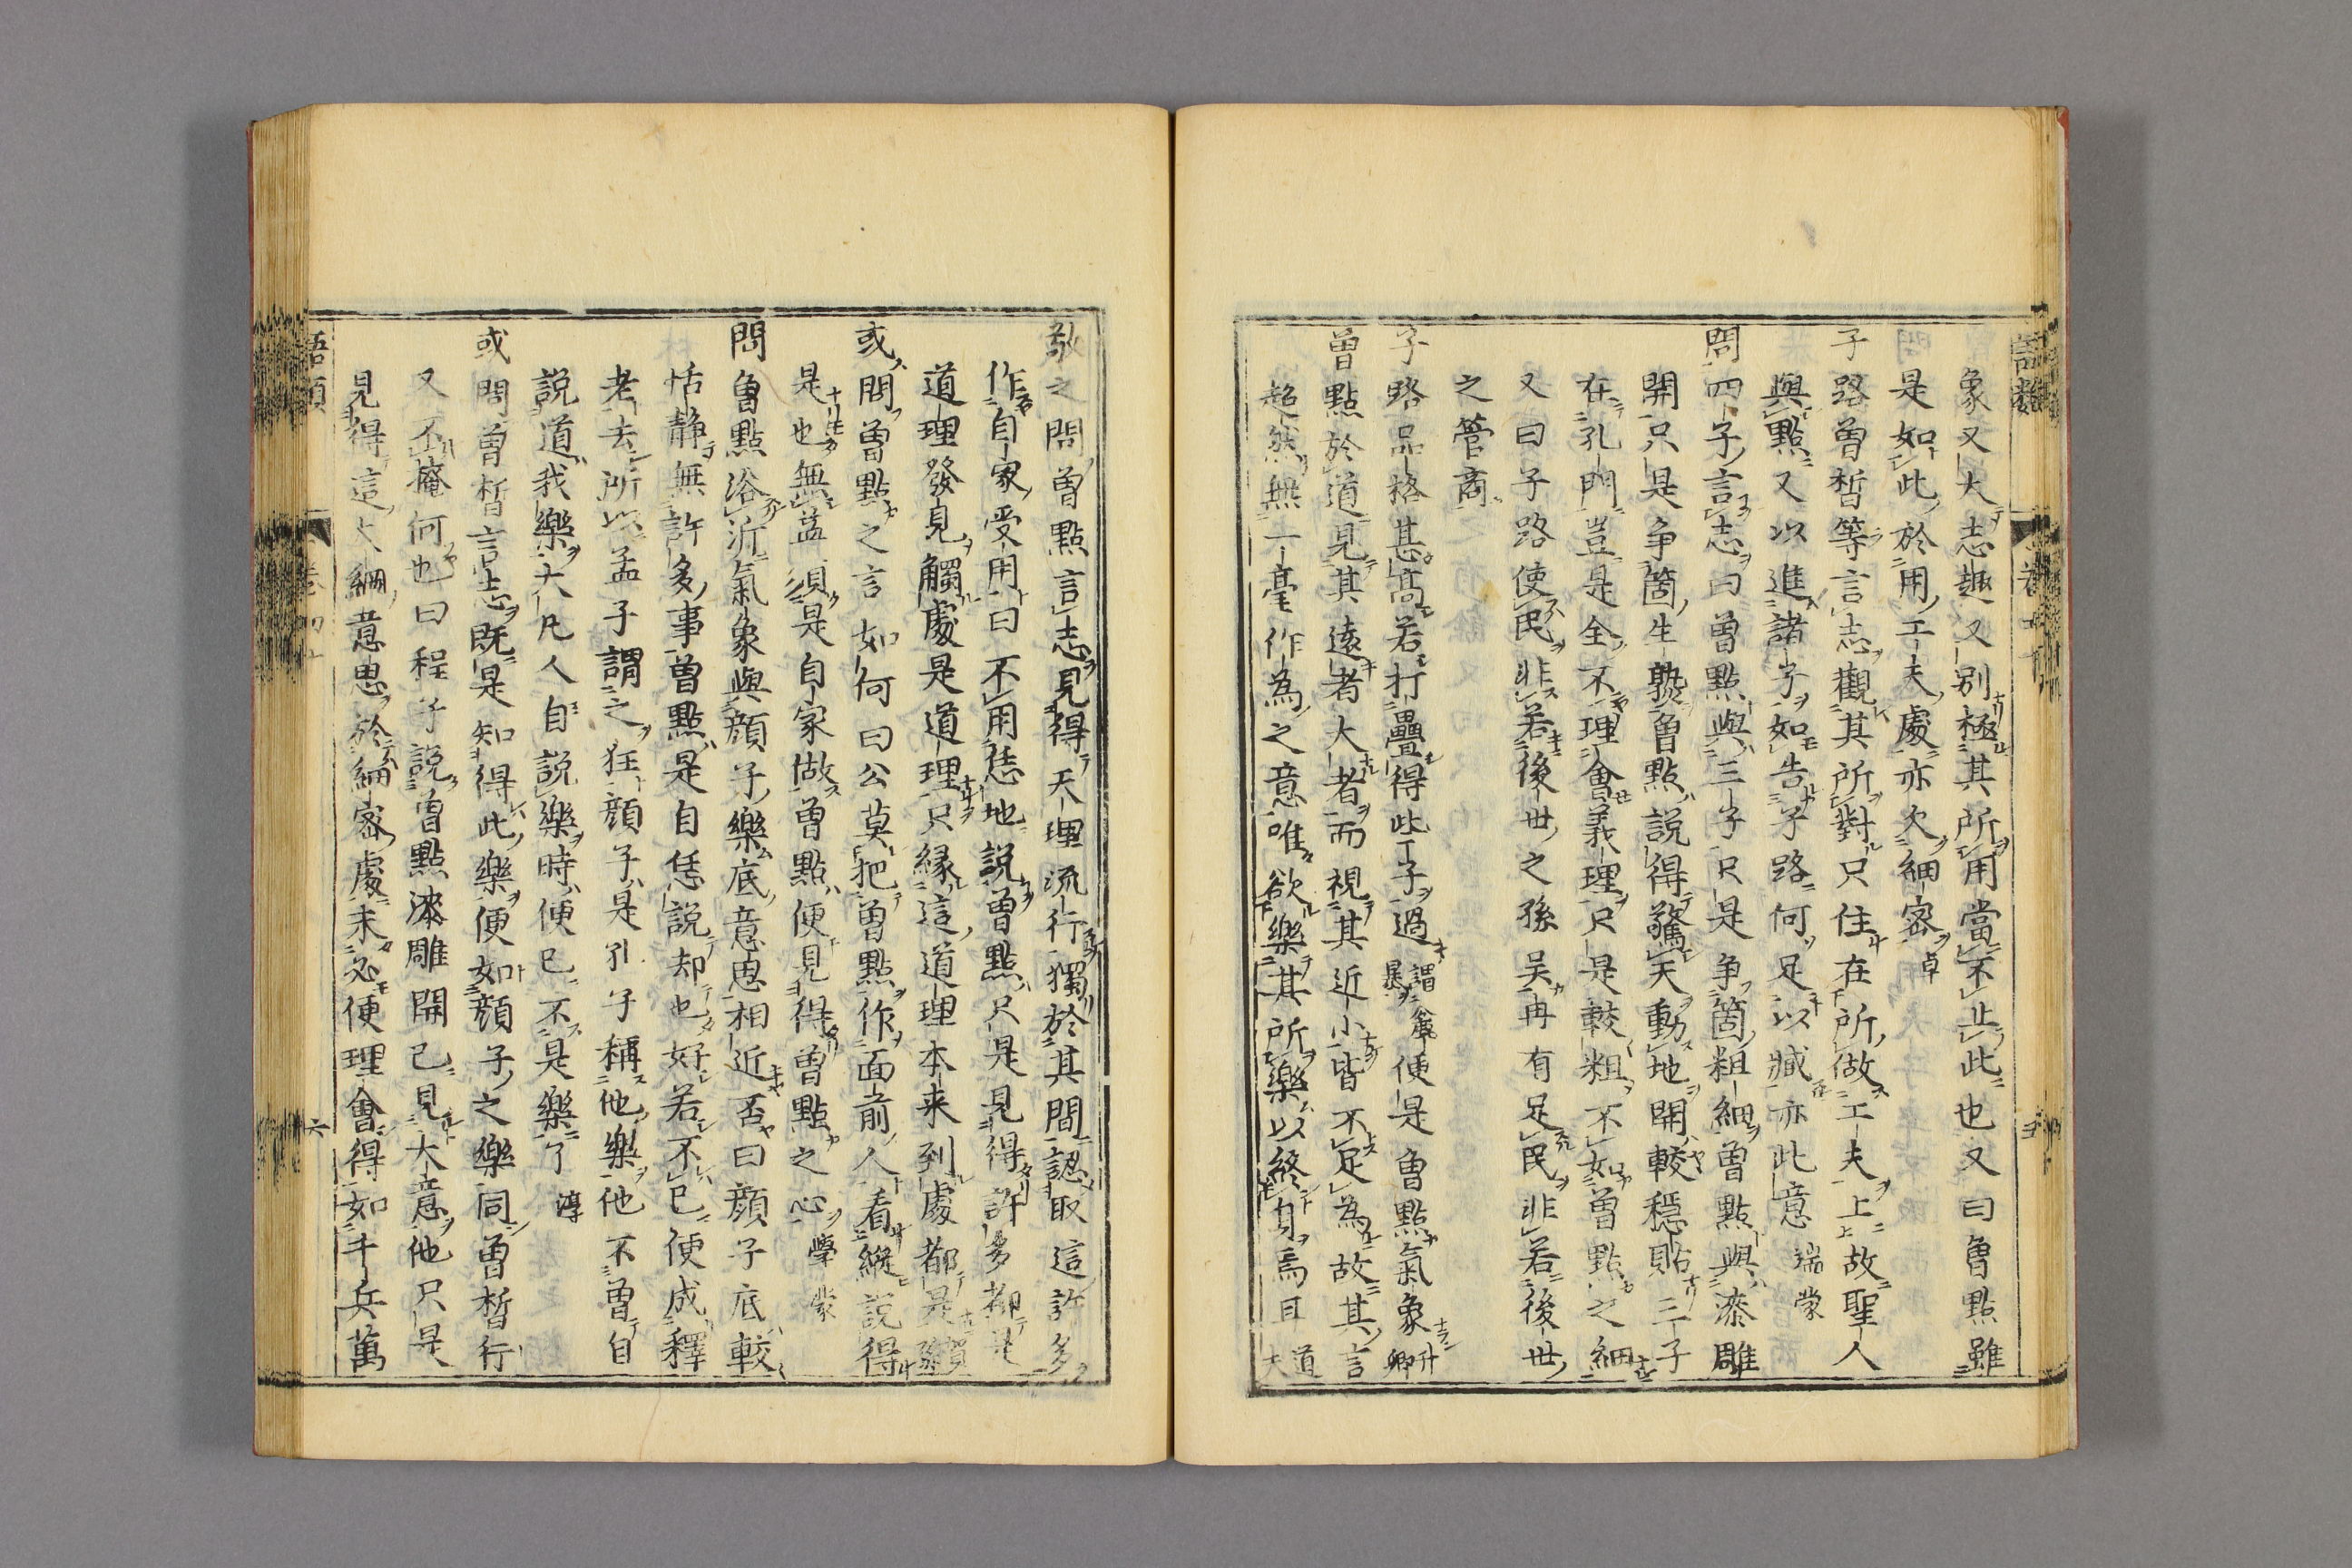 象又大志趣又别極其所用當不止此也又曰曾點雖
是如此於用工夫處亦欠細密卓
子路曾晳等言志觀其所對只住在所做工夫上故聖人
與點又以進諸子如告子路何足以臧亦此意端蒙
問四子言志曰曾點與三子只是争箇粗細曾點與漆雕
開只是争箇生熟曾點說得驚天動地開較穩貼三子
在孔門豈是全不理會義理只是較粗不如曾點之細
又曰子路使民非若後世之孫吴冉有足民非若後世
之管商
子路品格甚高若打疊得些子過謂麤暴便是曾點氣象升卿
曾點於道見其遠者大者而視其近小皆不足為故其言
超然無一毫作為之意唯欲樂其所樂以終身焉耳道夫
敬之問曾點言志見得天理流行獨於其間認取這許多
作自家受用曰不用恁地說曾點只是見得許多都是
道理發見觸處是道理只縁這道理本来到處都是賀孫
或問曾點之言如何曰公莫把曾點作面前人看縱說得
是也無益須是自家做曾點便見得曾點之心學蒙
問曾點浴沂氣象與顔子樂底意思相近否曰顔子底較
恬静無許多事曾點是自恁說却也好若不已便成釋
老去所以孟子謂之狂顔子是孔子稱他樂他不曾自
說道我樂大凡人自說樂時便已不是樂了淳
或問曾晳言志既是知得此樂便如顔子之樂同曾晳行
又不掩何也曰程子說曾點漆雕開已見大意他只是
見得這大綱意思於細密處未必便理會得如千兵萬
語類
卷四十
六